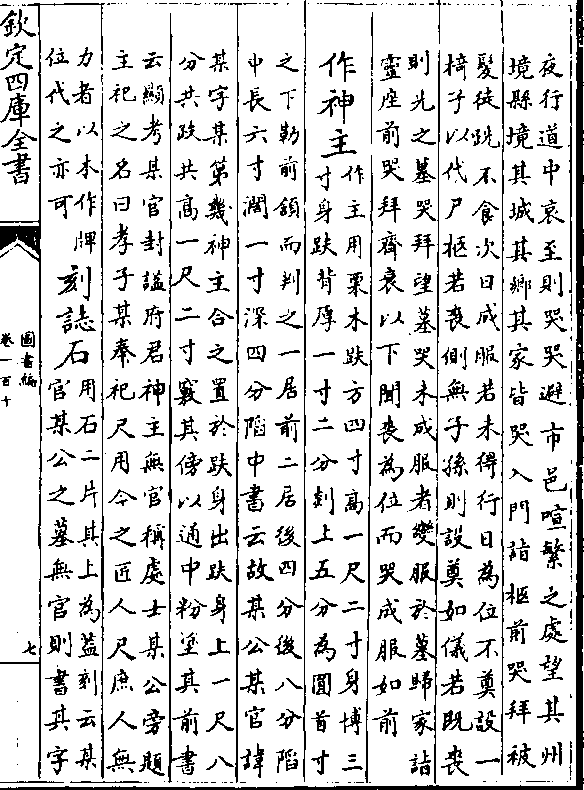 夜行道中哀至則哭哭避市邑喧繁之處望其州
境縣境其城其鄉其家皆哭入門詣柩前哭拜被
髮徒跣不食次日成服若未得行日為位不奠設一
椅子以代尸柩若喪側無子孫則設奠如儀若既喪
則先之墓哭拜望墓哭未成服者變服於墓歸家詣
靈座前哭拜齊衰以下聞喪為位而哭成服如前
作神主
作主用栗木趺方四寸高一尺二寸身博三
寸身趺背厚一寸二分剡上五分為圓首寸
之下勒前頷而判之一居前二居後四分後八分陷
中長六寸濶一寸深四分陷中書云故某公某官諱
某字某第幾神主合之置於趺身出趺身上一尺八
分共趺共高一尺二寸竅其傍以通中粉塗其前書
云顯考某官封謚府君神主無官稱處士某公旁題
主祀之名曰孝子某奉祀尺用今之匠人尺庶人無
力者以木作牌
位代之亦可
刻誌石
用石二片其上為葢刻云某
官某公之墓無官則書其字
欽定四庫全書
圖書編
卷一百十
七